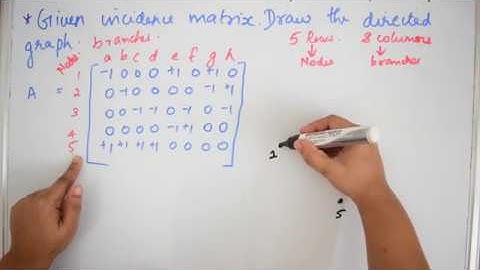 * Given incidence matrix. Draw the directed
graph. branches.
5 Rows. 8 columns
↓ ↓
Nodes branches
Nodes a b c d e f g h
1 -1 0 0 0 +1 0 +1 0
A = 2 0 -1 0 0 0 0 -1 +1
3 0 0 -1 -1 0 -1 0 -1
4 0 0 0 0 -1 +1 0 0
5 +1 +1 +1 +1 0 0 0 0
1
5